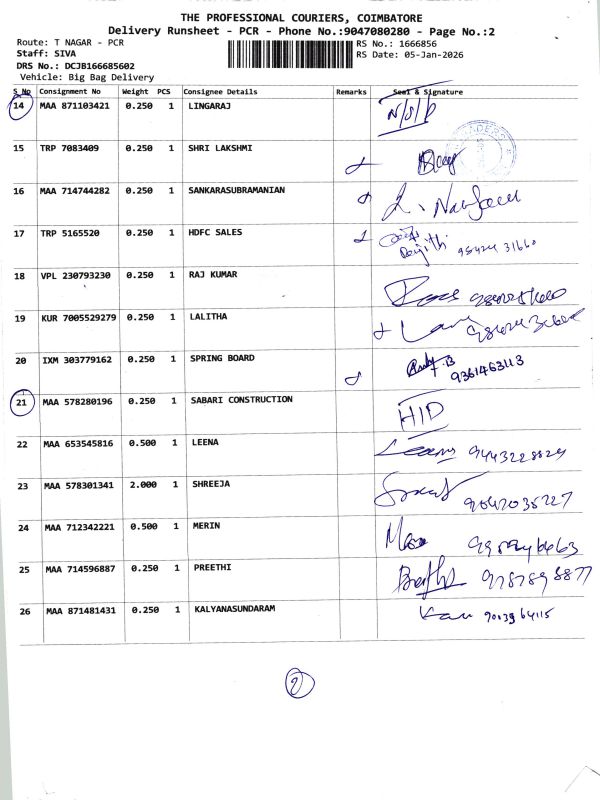 THE PROFESSIONAL COURIERS, COIMBATORE
Delivery Runsheet - PCR - Phone No.:9047080280 - Page No.:2
Route: T NAGAR - PCR
Staff: SIVA
DRS No.: DCJB166685602
Vehicle: Big Bag Delivery
RS No.: 1666856
RS Date: 05-Jan-2026
S No Consignment No Weight PCS Consignee Details Remarks Seal & Signature
14 MAA 871103421 0.250 1 LINGARAJ N/S/P
15 TRP 7083409 0.250 1 SHRI LAKSHMI
16 MAA 714744282 0.250 1 SANKARASUBRAMANIAN
17 TRP 5165520 0.250 1 HDFC SALES
18 VPL 230793230 0.250 1 RAJ KUMAR
19 KUR 7005529279 0.250 1 LALITHA
20 IXM 303779162 0.250 1 SPRING BOARD 9361463113
21 MAA 578280196 0.250 1 SABARI CONSTRUCTION HID
22 MAA 653545816 0.500 1 LEENA 9443228829
23 MAA 578301341 2.000 1 SHREEJA 9042035227
24 MAA 712342221 0.500 1 MERIN
25 MAA 714596887 0.250 1 PREETHI 9787898877
26 MAA 871481431 0.250 1 KALYANASUNDARAM 9003964115
2